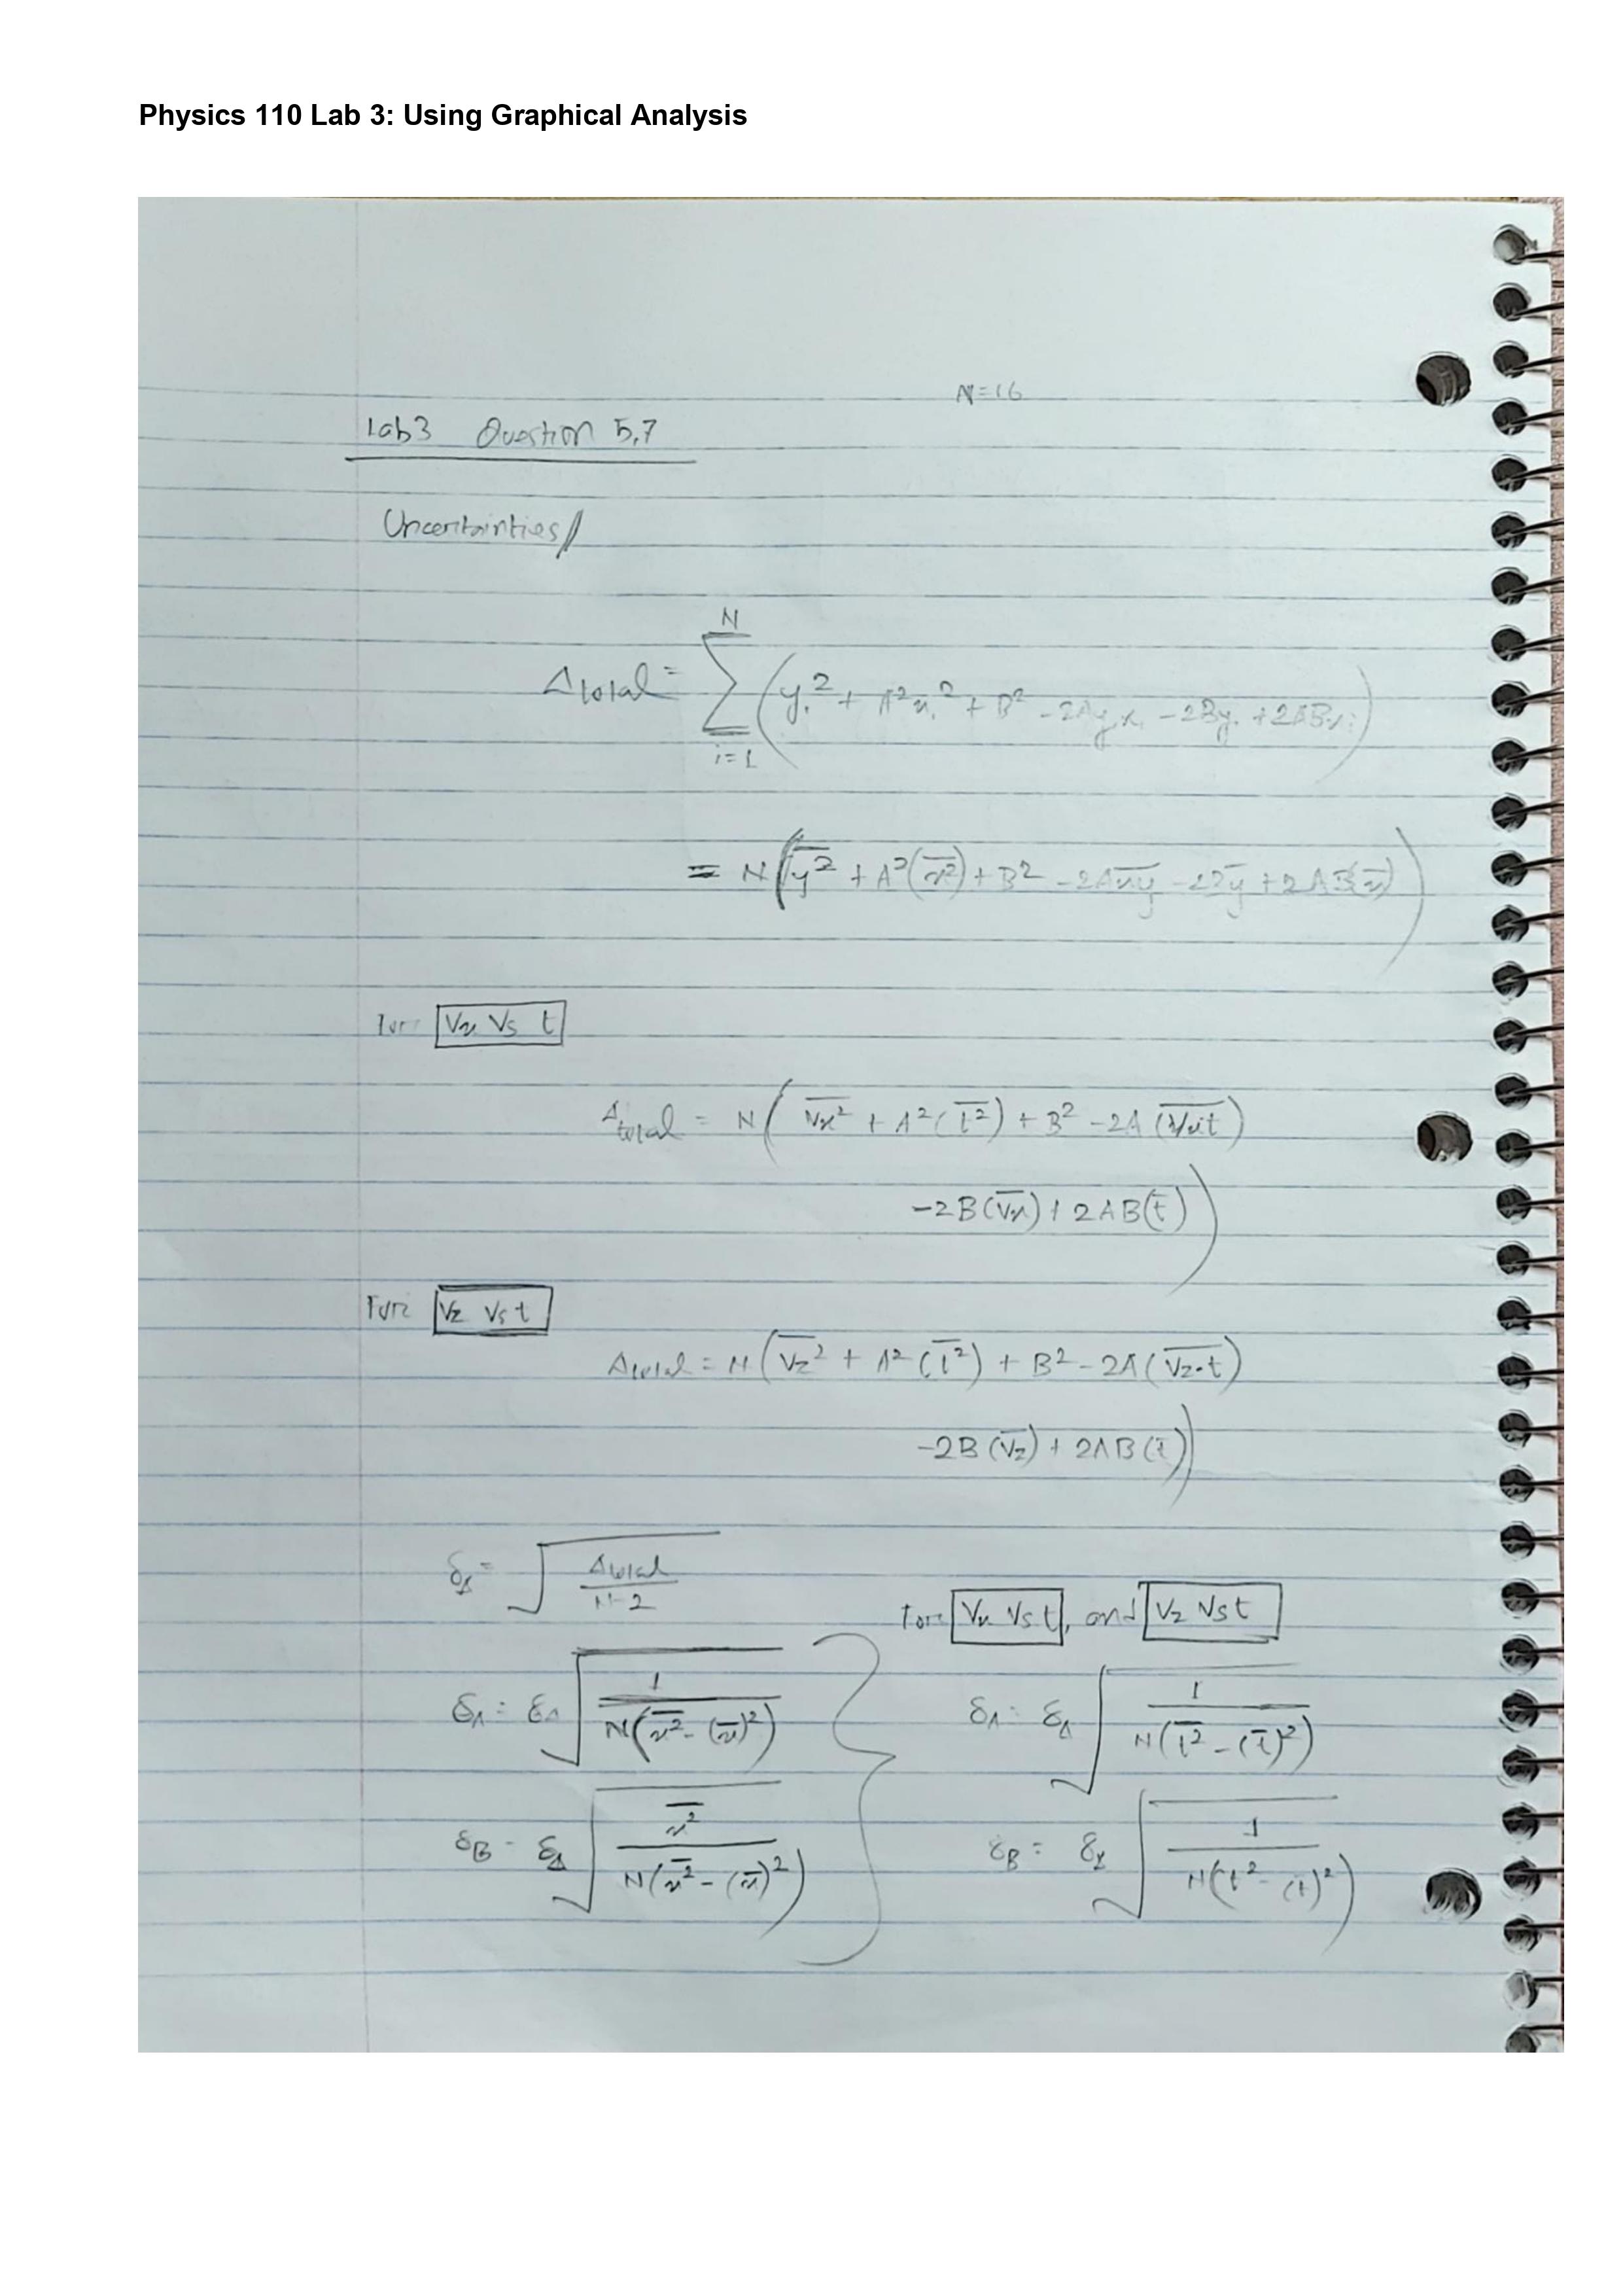 Physics 110 Lab 3: Using Graphical Analysis
N=16
Lab3 Question 5,7
Uncertainties//
Δtotal = Σ_{i=1}^{N} (yᵢ² + A²xᵢ² + B² - 2Ayᵢxᵢ - 2Byᵢ + 2ABxᵢ)
= N(y̅²̅ + A²(x̅²̅) + B² - 2Ax̅y̅ - 2By̅ + 2AB(x̅))
For Vx Vs t
Δtotal = N( V̅x̅²̅ + A²(t̅²̅) + B² - 2A (V̅x̅t̅)
-2B(V̅x̅) + 2AB(t̅))
For Vz Vs t
Δtotal = N(V̅z̅² + A²(t̅²̅) + B² - 2A(V̅z̅·̅t̅)
-2B(V̅z̅) + 2AB(t̅))
δΔ = √(Δtotal / N-2)
For Vx Vs t, and Vz Vs t
δA = δΔ √(1 / N(x̅²̅ - (x̅)²))
δA = δΔ √(1 / N(t̅²̅ - (t̅)²))
δB = δΔ √(x̅²̅ / N(x̅²̅ - (x̅)²))
δB = δΔ √(1 / N(t² - (t̅)²))